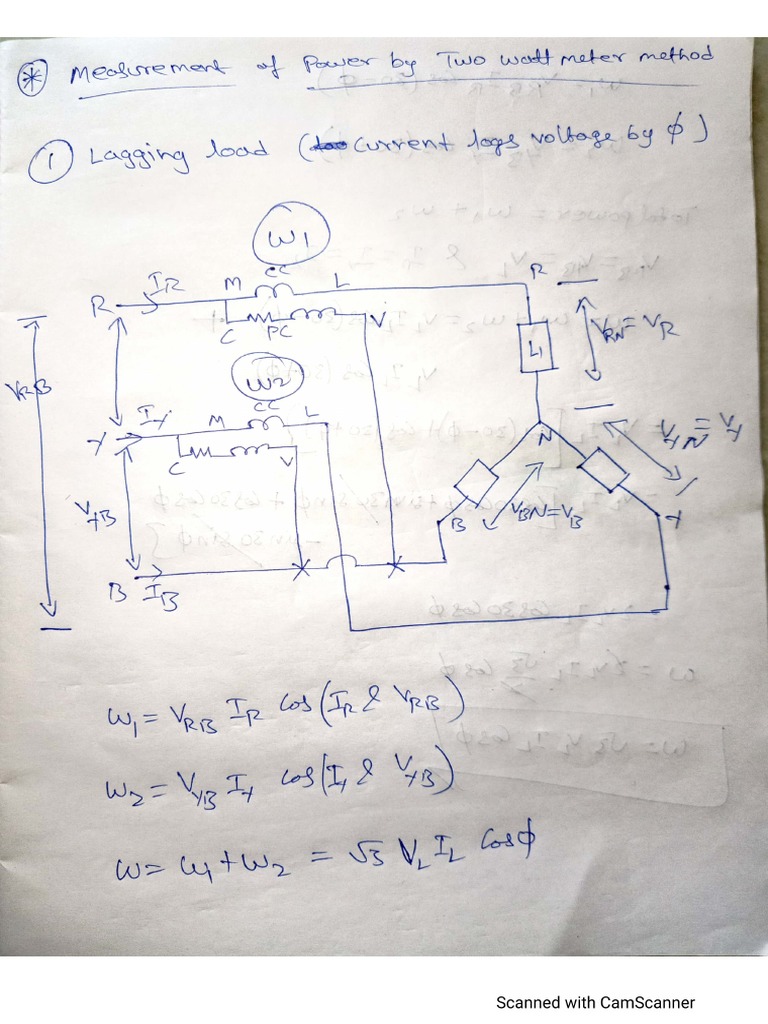 * Measurement of Power by Two wattmeter method
1 Lagging load (Current lags voltage by φ)
W1
CC
IR M L R
R
C PC V
VRN=VR
L1
W2
VRB
CC
IY M L
Y
C V
N
VYN = VY
VYB
B VBN=VB Y
B IB
W1 = VRB IR cos(IR & VRB)
W2 = VYB IY cos(IY & VYB)
W = W1 + W2 = √3 VL IL cosφ
Scanned with CamScanner